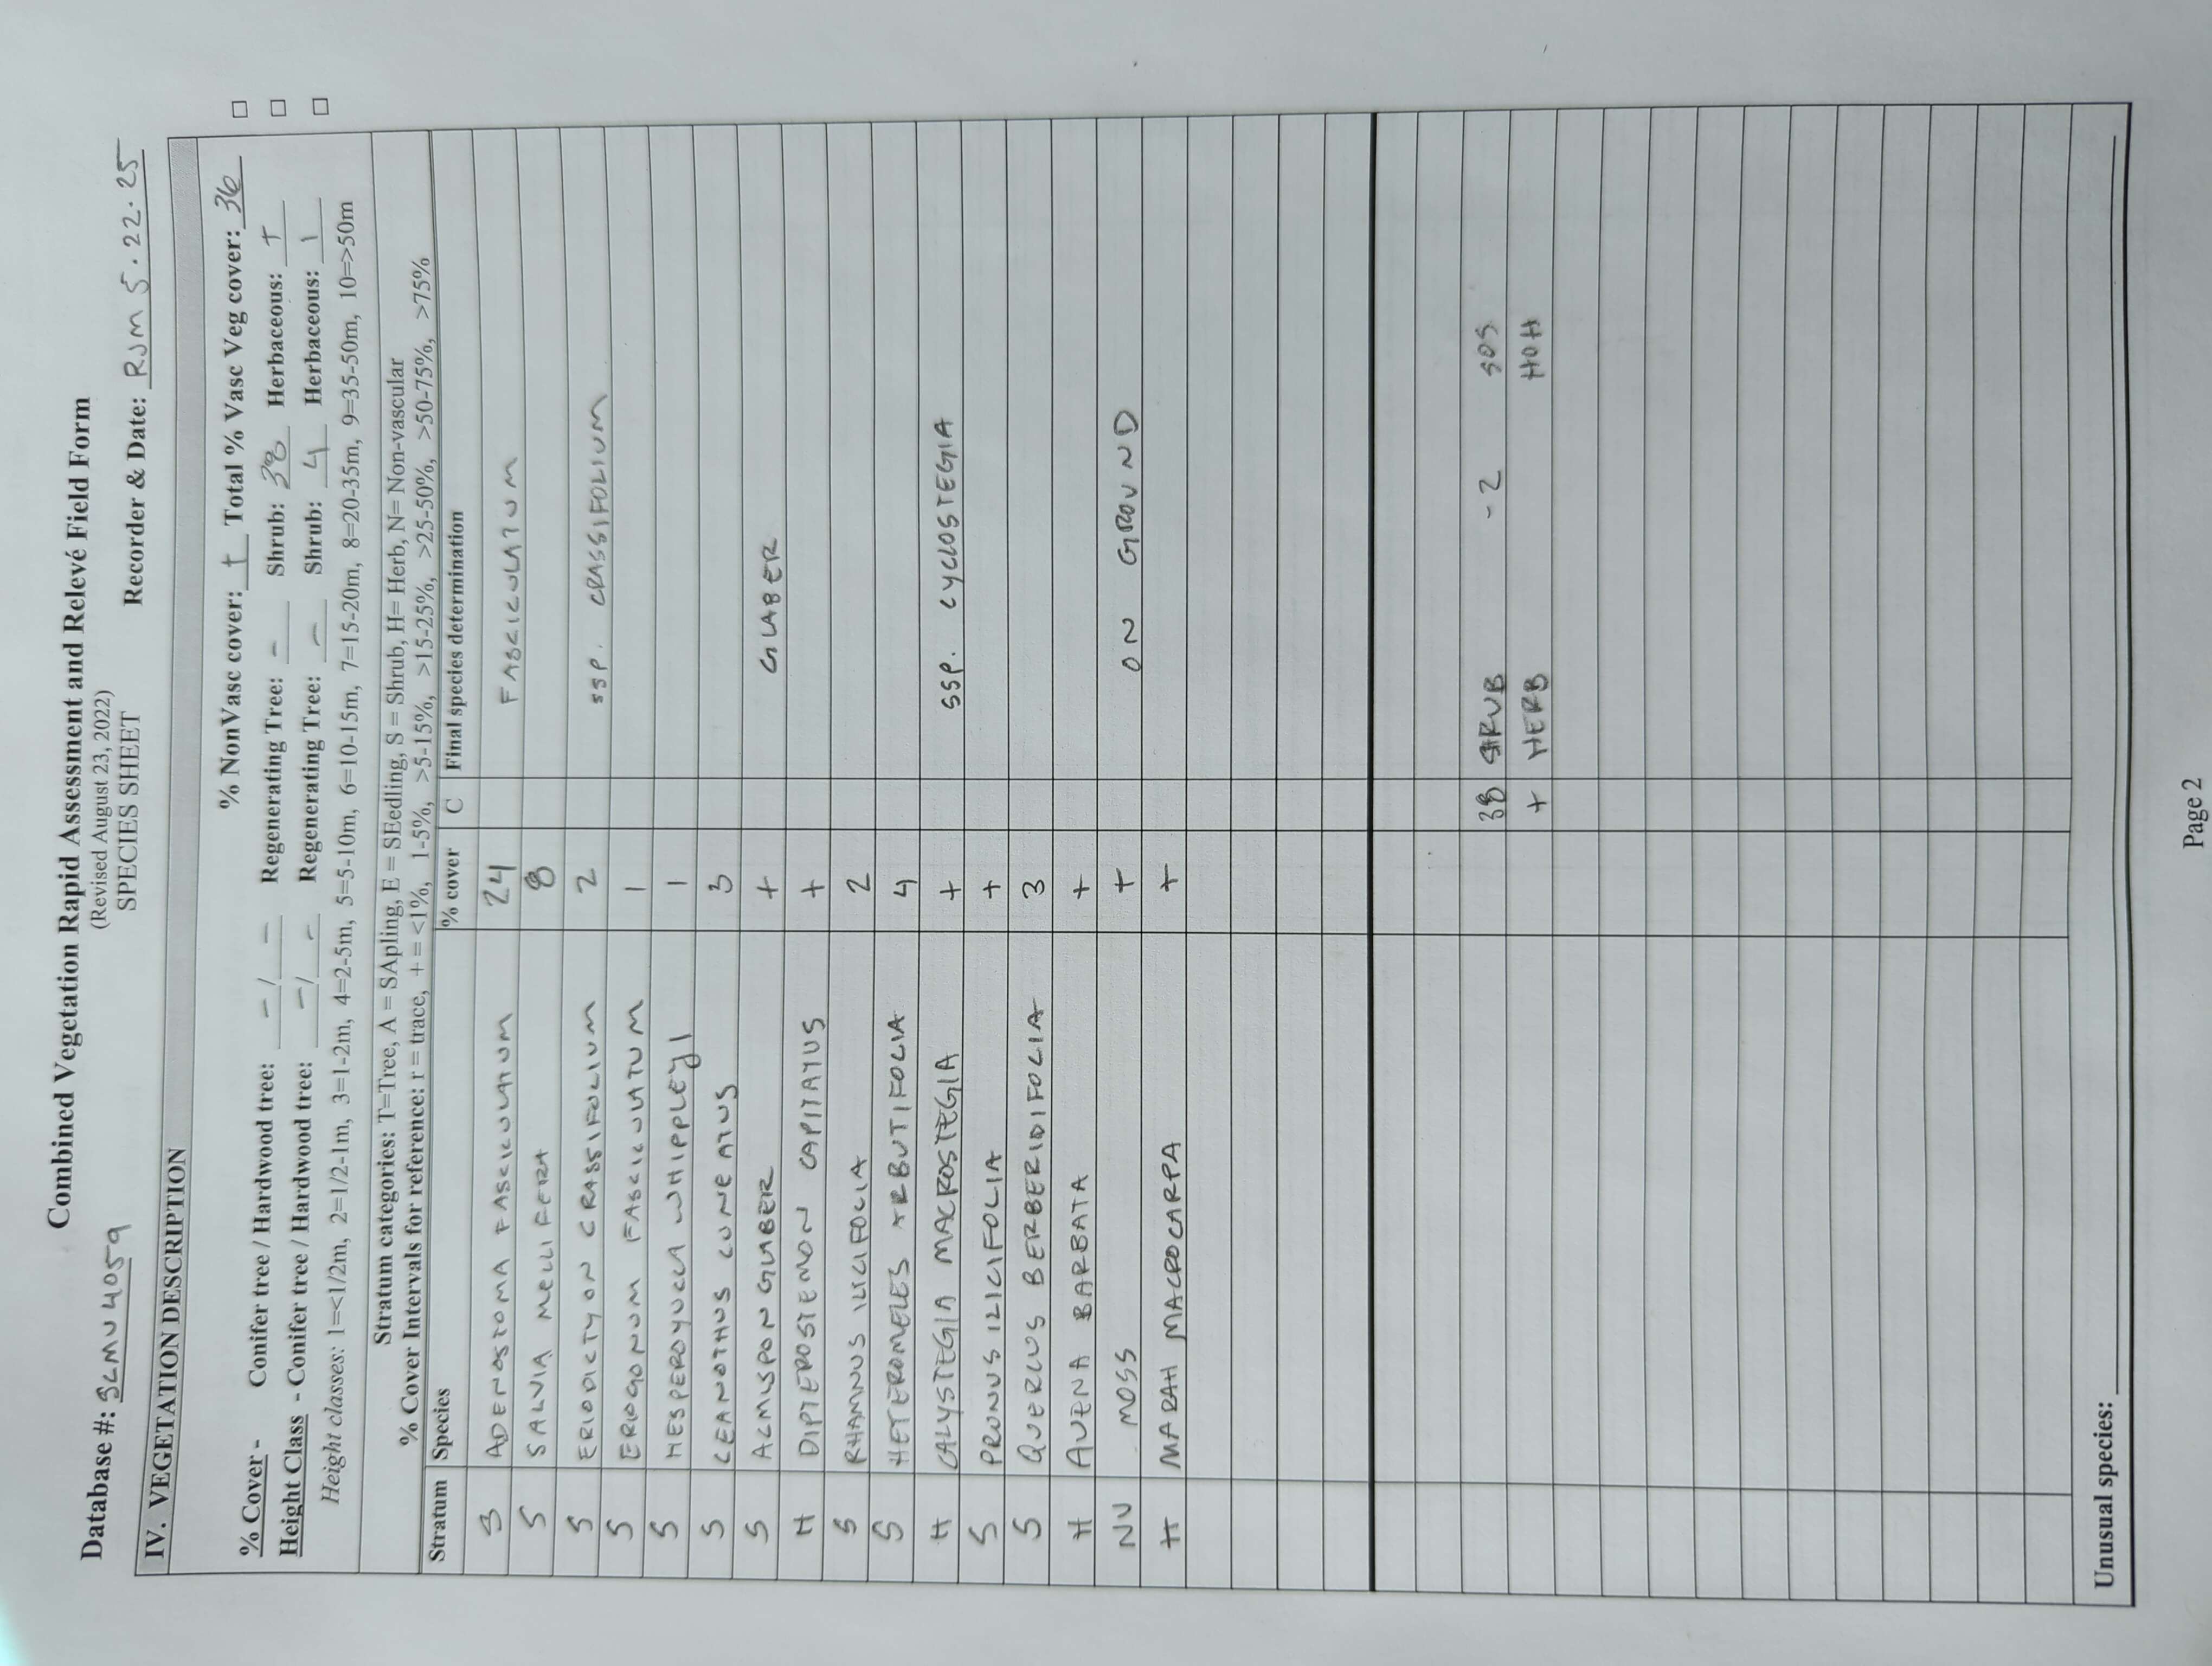 Combined Vegetation Rapid Assessment and Relevé Field Form
(Revised August 23, 2022)
SPECIES SHEET
Database #: SLMU 4059 Recorder & Date: RJM 5.22.25
IV. VEGETATION DESCRIPTION
% NonVasc cover: + Total % Vasc Veg cover: 36 □
% Cover - Conifer tree / Hardwood tree: – / – Regenerating Tree: – Shrub: 38 Herbaceous: + □
Height Class - Conifer tree / Hardwood tree: – / – Regenerating Tree: – Shrub: 4 Herbaceous: 1 □
Height classes: 1=<1/2m, 2=1/2-1m, 3=1-2m, 4=2-5m, 5=5-10m, 6=10-15m, 7=15-20m, 8=20-35m, 9=35-50m, 10=>50m
Stratum categories: T=Tree, A = SApling, E = SEedling, S = Shrub, H= Herb, N= Non-vascular
% Cover Intervals for reference: r = trace, + = <1%, 1-5%, >5-15%, >15-25%, >25-50%, >50-75%, >75%
Stratum Species % cover C Final species determination
S ADENOSTOMA FASCICULATUM 24 FASCICULATUM
S SALVIA MELLIFERA 8
S ERIODICTYON CRASSIFOLIUM 2 SSP. CRASSIFOLIUM
S ERIOGONUM FASCICULATUM 1
S HESPEROYUCCA WHIPPLEYI 1
S CEANOTHUS CUNEATUS 3
S ACMISPON GLABER + GLABER
H DIPTEROSTEMON CAPITATUS +
S RHAMNUS ILICIFOLIA 2
S HETEROMELES ARBUTIFOLIA 4
H CALYSTEGIA MACROSTEGIA + SSP. CYCLOSTEGIA
S PRUNUS ILICIFOLIA +
S QUERCUS BERBERIDIFOLIA 3
H AVENA BARBATA +
NV MOSS + ON GROUND
H MARAH MACROCARPA +
38 SHRUB - 2 SOS
+ HERB HOH
Unusual species:
Page 2